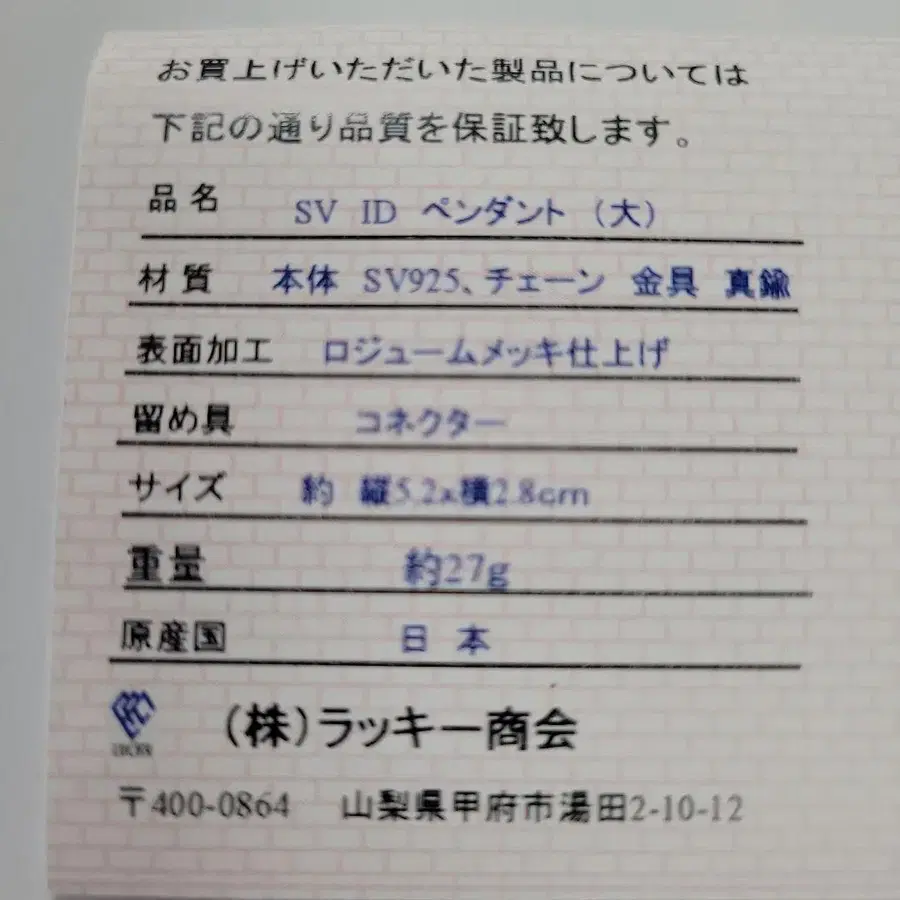 お買上げいただいた製品については
下記の通り品質を保証致します。
品名 SV ID ペンダント (大)
材質 本体 SV925、チェーン 金具 真鍮
表面加工 ロジュームメッキ仕上げ
留め具 コネクター
サイズ 約 縦5.2x横2.8cm
重量 約27g
原産国 日本
(株)ラッキー商会
〒400-0864 山梨県甲府市湯田2-10-12